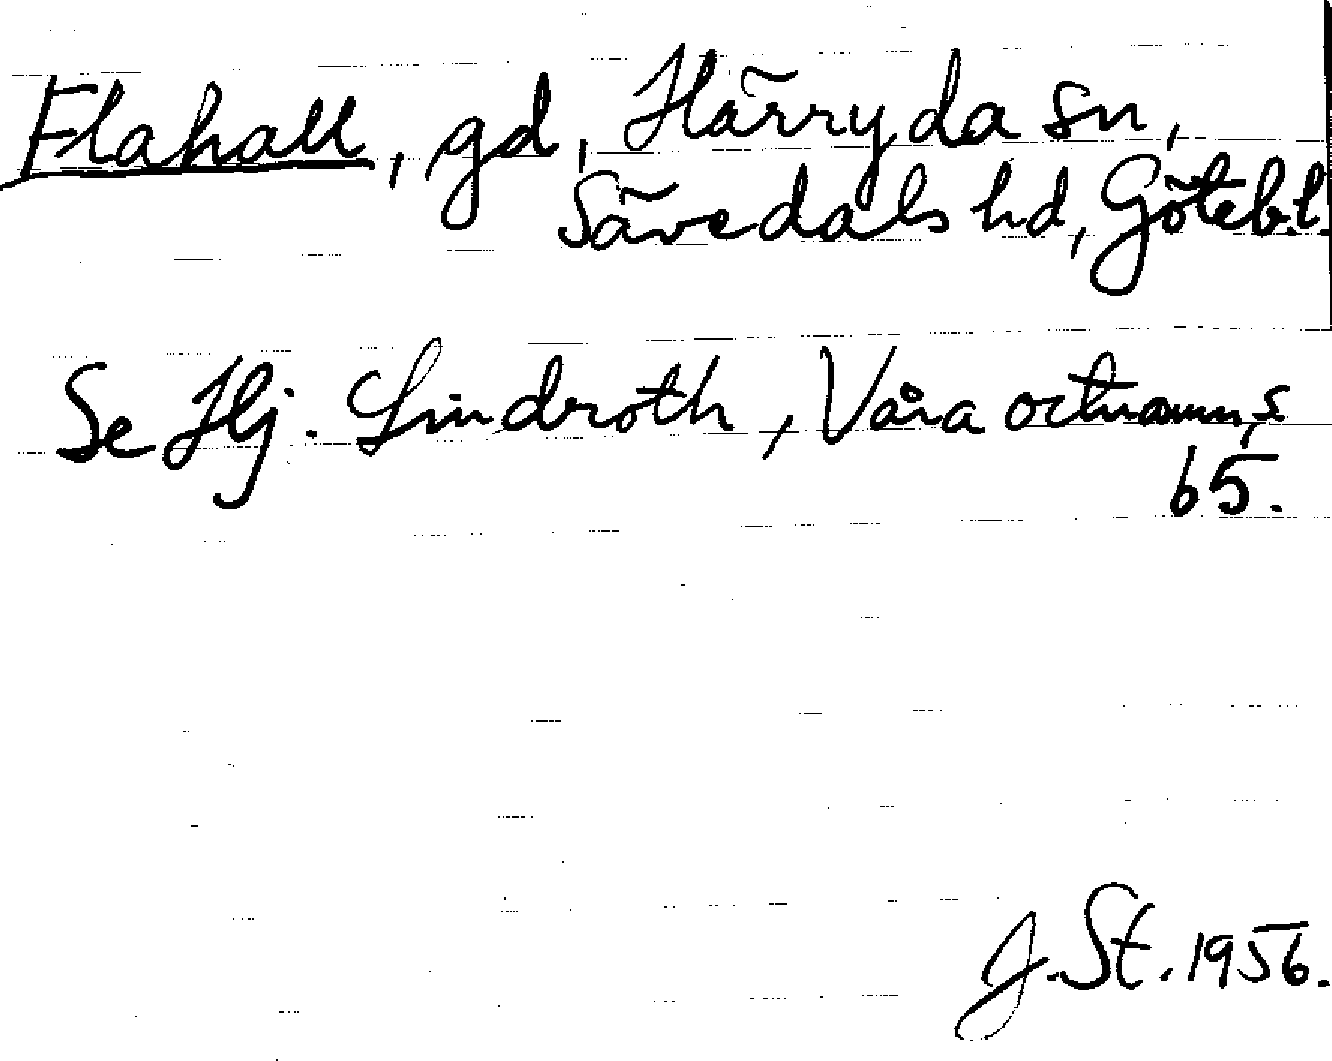 Flahall, gd, Härryda sn,
Sävedals hd, Göteb.l.
Se Hj. Lindroth, Våra ortnamn, s
65.
J. St. 1956.